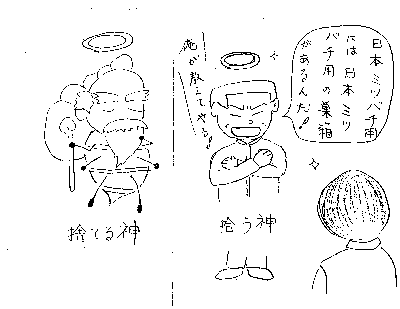 日本ミツバチ用
には日本ミツ
バチ用の巣箱
があるんだ!!
俺が教えてやる!!
捨てる神
拾う神